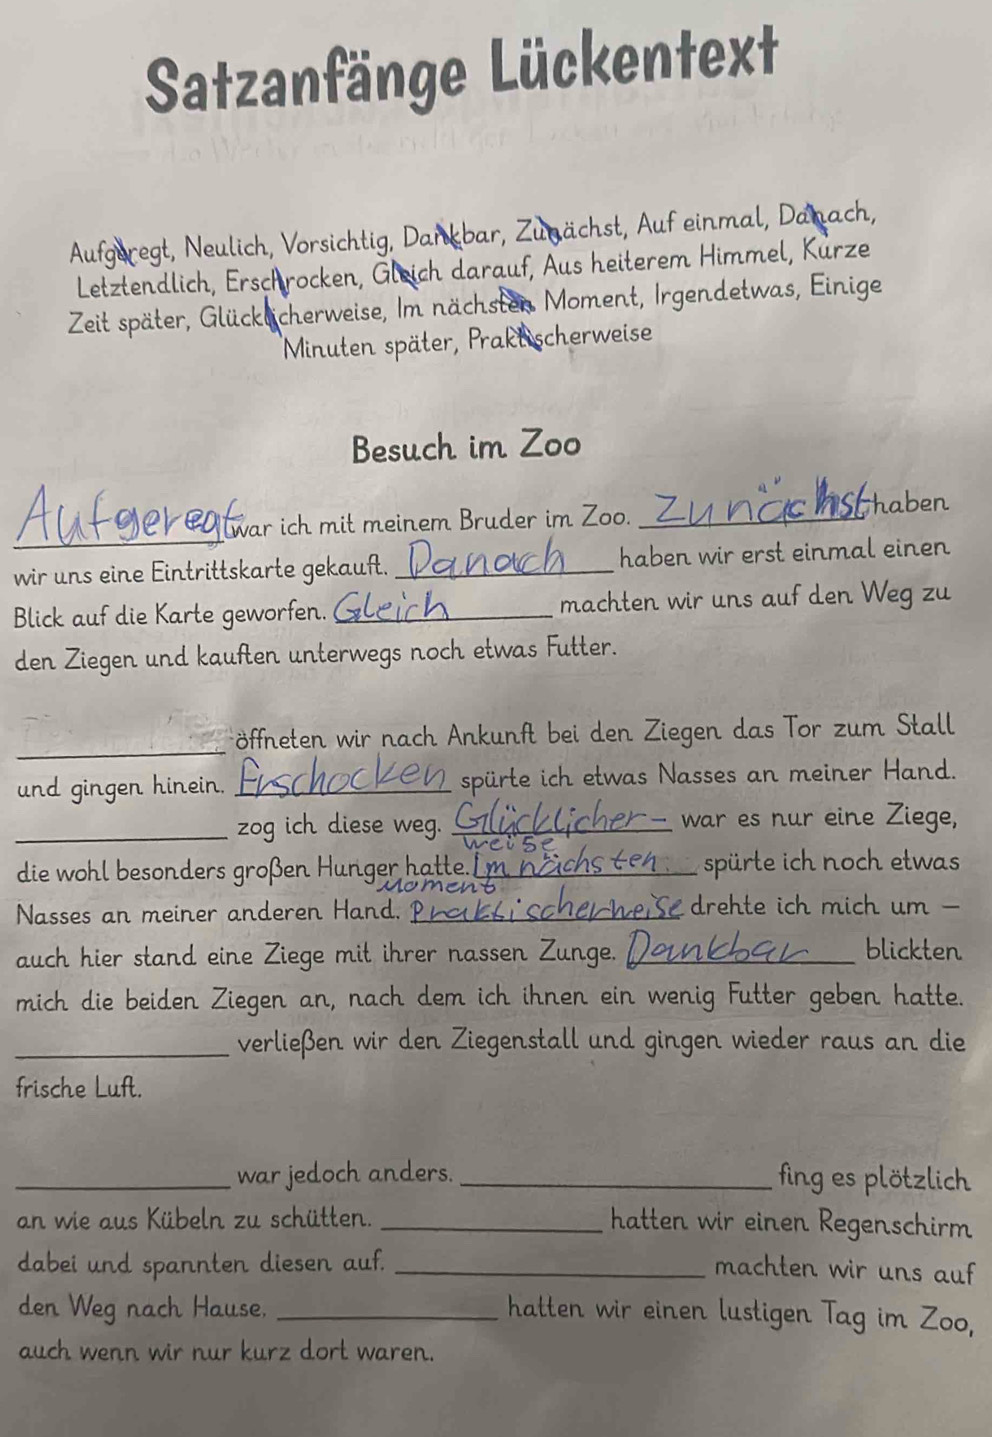 Satzanfänge Lückentext
Aufgeregt, Neulich, Vorsichtig, Dankbar, Zunächst, Auf einmal, Danach,
Letztendlich, Erschrocken, Gleich darauf, Aus heiterem Himmel, Kurze
Zeit später, Glücklicherweise, Im nächsten Moment, Irgendetwas, Einige
Minuten später, Praktischerweise
Besuch im Zoo
Aufgeregt war ich mit meinem Bruder im Zoo. Zunächst haben
wir uns eine Eintrittskarte gekauft. Danach haben wir erst einmal einen
Blick auf die Karte geworfen. Gleich machten wir uns auf den Weg zu
den Ziegen und kauften unterwegs noch etwas Futter.
____ öffneten wir nach Ankunft bei den Ziegen das Tor zum Stall
und gingen hinein. Erschocken spürte ich etwas Nasses an meiner Hand.
____ zog ich diese weg. Glücklicher- war es nur eine Ziege,
weise
die wohl besonders großen Hunger hatte. Im nächsten spürte ich noch etwas
Moment
Nasses an meiner anderen Hand. Praktischerweise drehte ich mich um –
auch hier stand eine Ziege mit ihrer nassen Zunge. Dankbar blickten
mich die beiden Ziegen an, nach dem ich ihnen ein wenig Futter geben hatte.
____ verließen wir den Ziegenstall und gingen wieder raus an die
frische Luft.
____ war jedoch anders. ____ fing es plötzlich
an wie aus Kübeln zu schütten. ____ hatten wir einen Regenschirm
dabei und spannten diesen auf. ____ machten wir uns auf
den Weg nach Hause. ____ hatten wir einen lustigen Tag im Zoo,
auch wenn wir nur kurz dort waren.